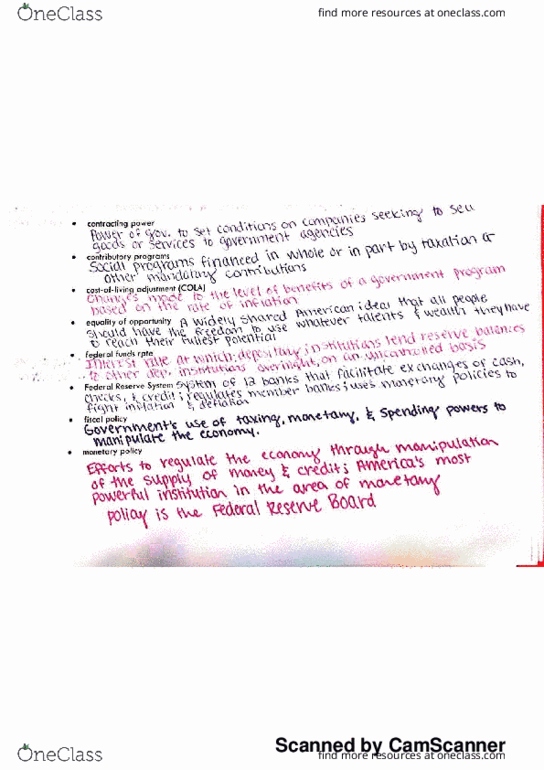 OneClass
find more resources at oneclass.com
contracting power
Power of gov. to set conditions on companies seeking to sell
goods or services to government agencies
contributory programs
Social programs financed in whole or in part by taxation or
other mandatory contributions
cost-of-living adjustment (COLA)
Changes made to the level of benefits of a government program
based on the rate of inflation
equality of opportunity A widely shared American ideal that all people
should have the freedom to use whatever talents & wealth they have
to reach their fullest potential
federal funds rate
Interest rate at which depositary institutions lend reserve balances
to other dep. institutions overnight, on an uncollateralized basis
Federal Reserve System System of 12 banks that facilitate exchanges of cash,
checks, & credit; regulates member banks; uses monetary policies to
fight inflation & deflation
fiscal policy
Government's use of taxing, monetary, & spending powers to
manipulate the economy.
monetary policy
Efforts to regulate the economy through manipulation
of the supply of money & credit; America's most
powerful institution in the area of monetary
policy is the Federal Reserve Board
Scanned by CamScanner
OneClass
find more resources at oneclass.com